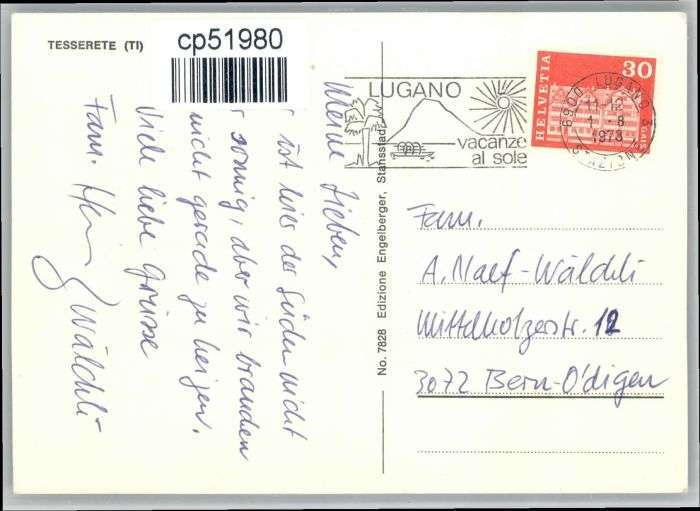 TESSERETE (TI)
cp51980
Meine Lieben,
ist hier der Süden nicht
sonnig, aber wir brauchen
nicht gerade zu heizen.
Viele liebe Grüsse
Fam. Wälchli
No. 7828 Edizione Engelberger, Stansstad
LUGANO
vacanze
al sole
HELVETIA
30
6900 LUGANO 3
11-12
1973
Fam.
A. Naef-Wälchli
Mittelholzerstr. 12
3072 Bern-O'digen